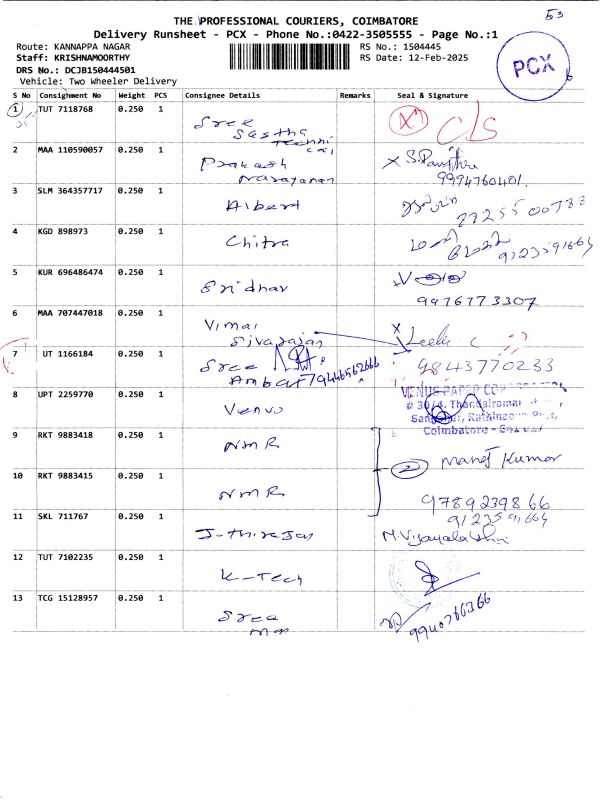 53
THE PROFESSIONAL COURIERS, COIMBATORE
Delivery Runsheet - PCX - Phone No.:0422-3505555 - Page No.:1
Route: KANNAPPA NAGAR RS No.: 1504445
Staff: KRISHNAMOORTHY RS Date: 12-Feb-2025
DRS No.: DCJB150444501
Vehicle: Two Wheeler Delivery
PCX
S No Consignment No Weight PCS Consignee Details Remarks Seal & Signature
1 TUT 7118768 0.250 1 Sree Sastha C/S
2 MAA 110590057 0.250 1 Prakash Narayanan
9994760401.
3 SLM 364357717 0.250 1 Albert
4 KGD 898973 0.250 1 Chitra
9123591664
5 KUR 696486474 0.250 1 Sridhar
9976773307
6 MAA 707447018 0.250 1 Vimal Sivarajan
7 UT 1166184 0.250 1 Sree Ambal
9843770233
8 UPT 2259770 0.250 1 Venus
VENUS PAPER CORPORATION
# 30/4, Thandalramar
Coimbatore
9 RKT 9883418 0.250 1 NMR
10 RKT 9883415 0.250 1 NMR
2 Manoj Kumar
9789239866
11 SKL 711767 0.250 1 J-thirajan
9123591664
12 TUT 7102235 0.250 1 K-Tech
13 TCG 15128957 0.250 1 Sree
9940766366